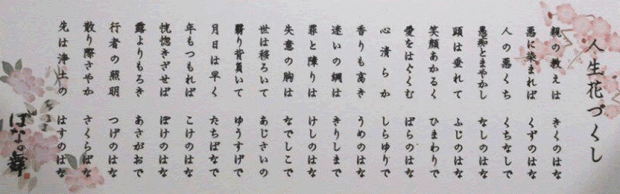 人生花づくし
親の教えは　きくのはな
悪に染まれば　くずのはな
人の悪くち　くちなしで
愚痴とまやかし　なしのはな
頭は垂れて　ふじのはな
笑顔あかるく　ひまわりで
愛をはぐくむ　ばらのはな
心清らか　しらゆりで
香りも高き　うめのはな
迷いの綱は　きりしまで
罪と障りは　けしのはな
失意の胸は　なでしこで
世は移ろいて　あじさいの
翳り背負いて　ゆうすげで
月日は早く　たちばなで
年もつもれば　こけのはな
恍惚きざせば　ぼけのはな
露よりもろき　あさがおで
行者の照明　つげのはな
散り際さやか　さくらばな
先は浄土の　はすのはな
はなの舞